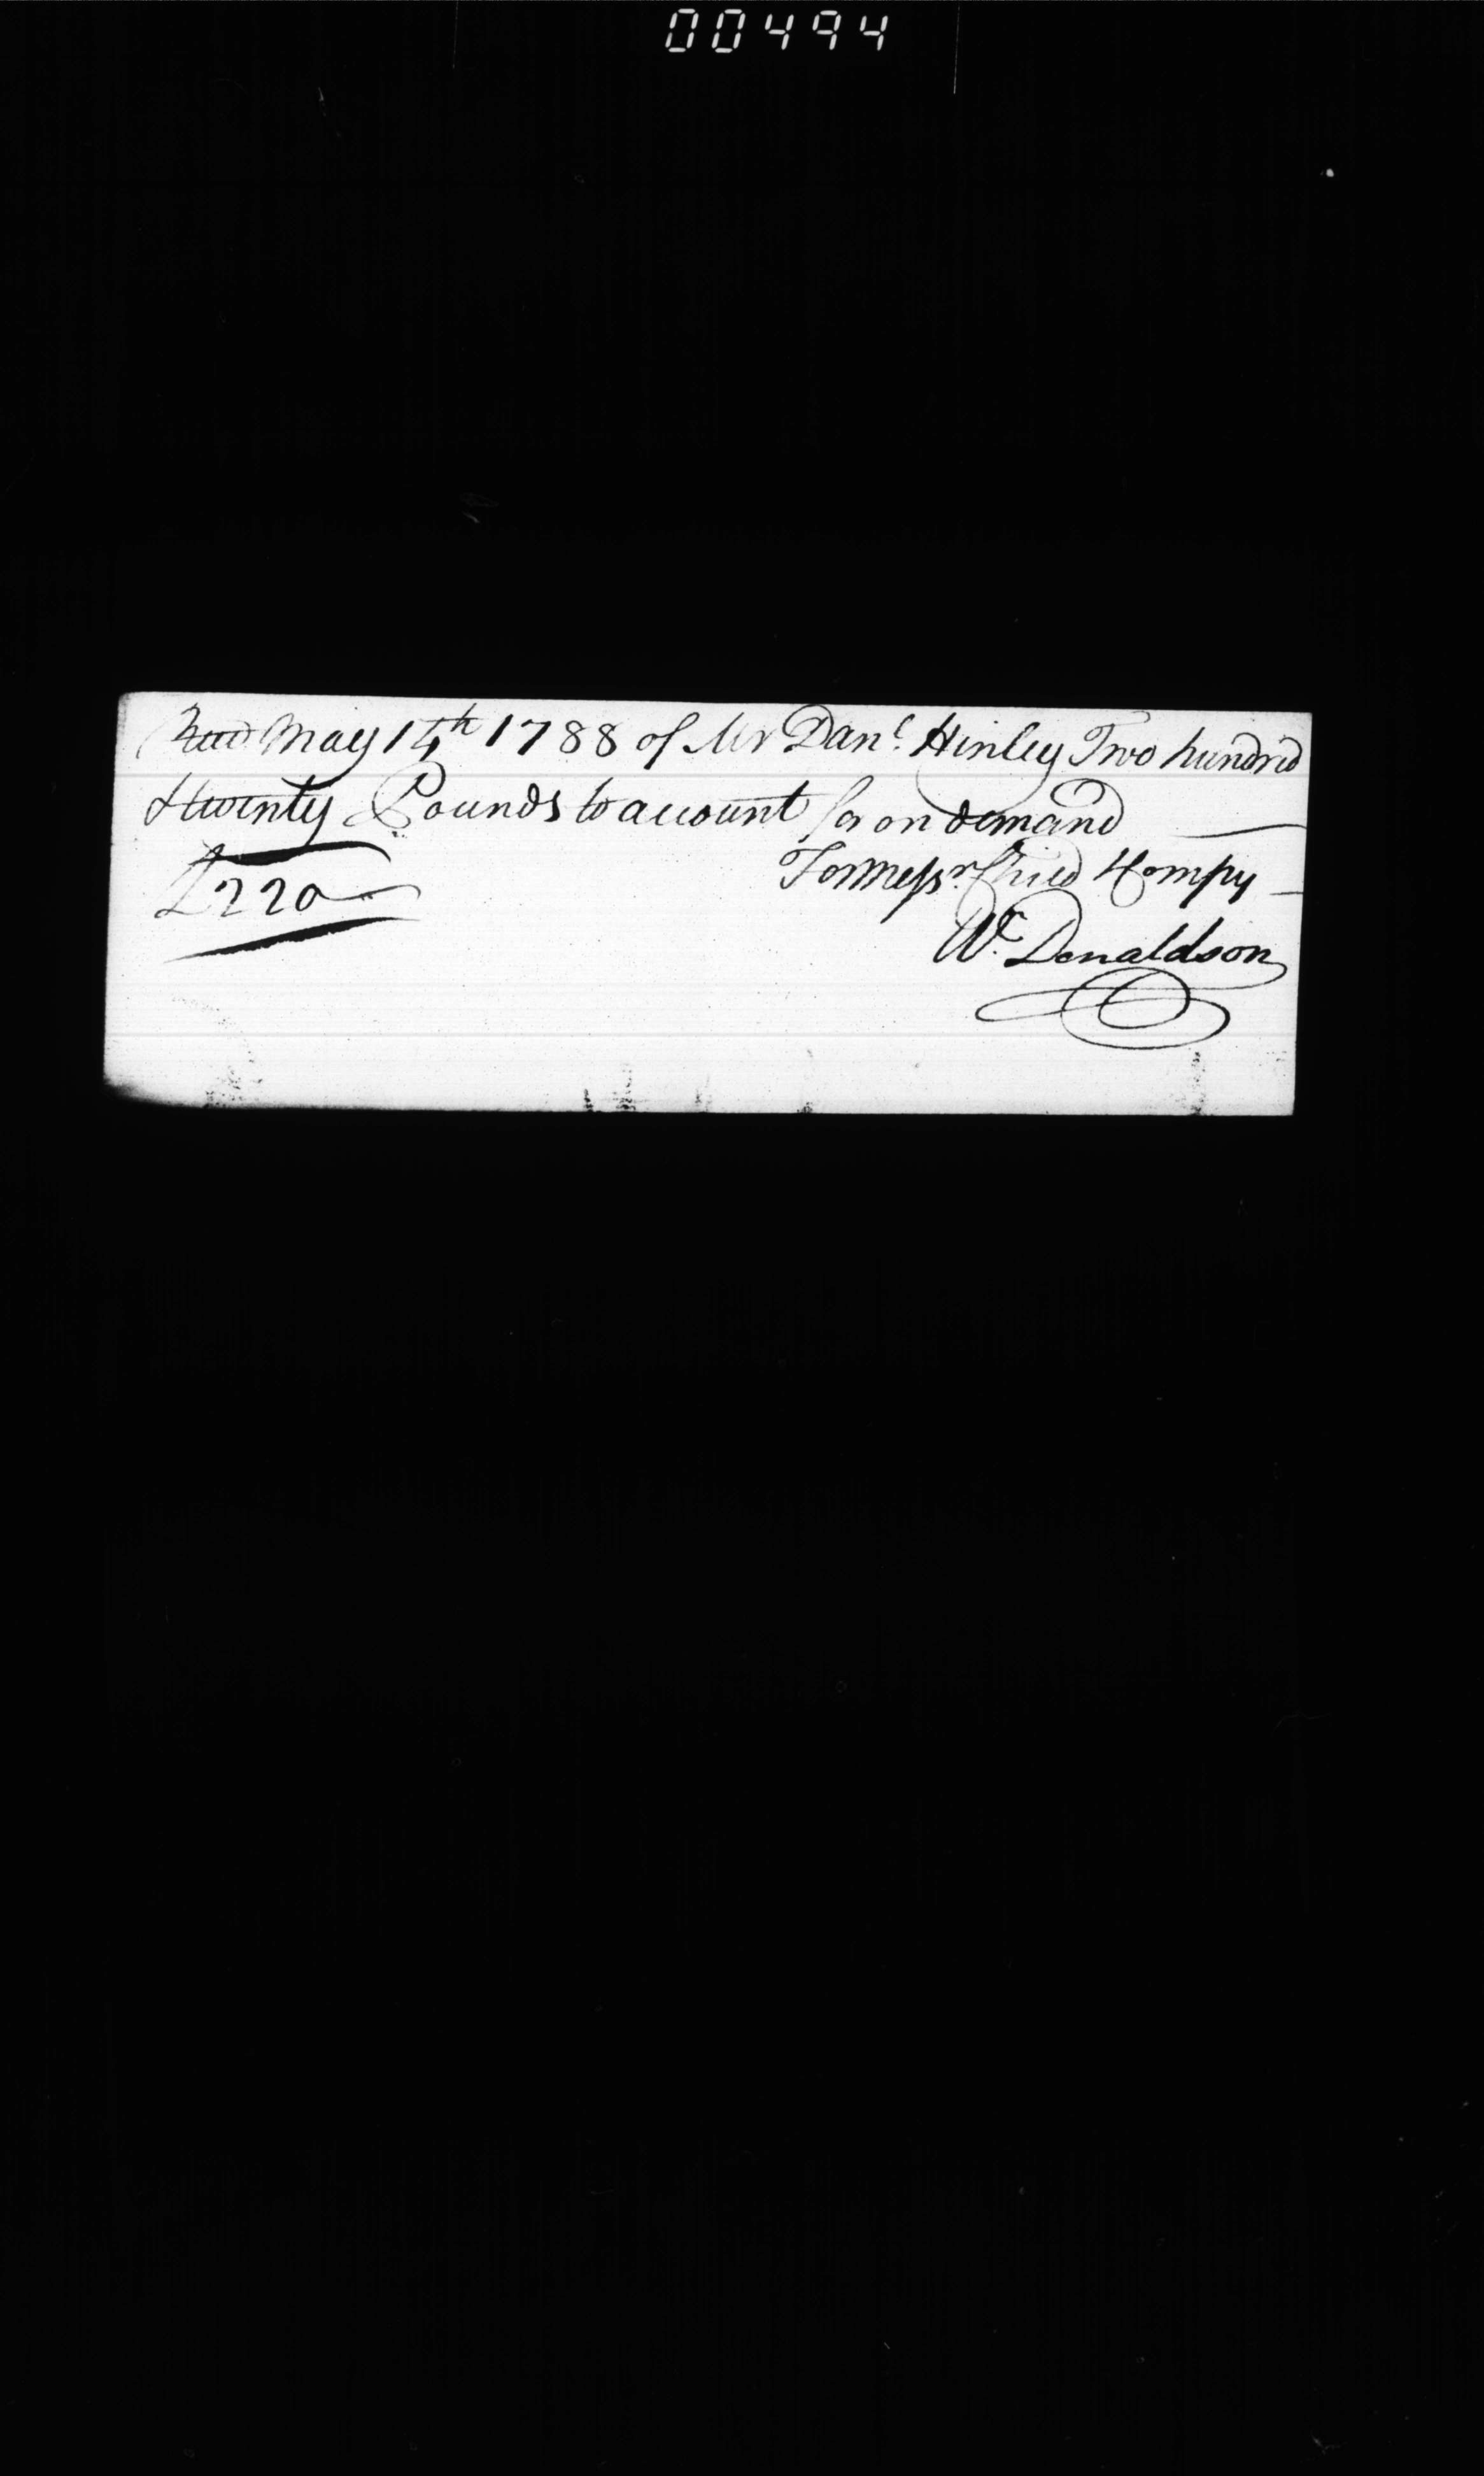 00494
Recd May 14th 1788 of Mr Danl Hinley Two hundred
& twenty Pounds to account for on demand
For Messrs Child & Compy
£220 Wm Donaldson